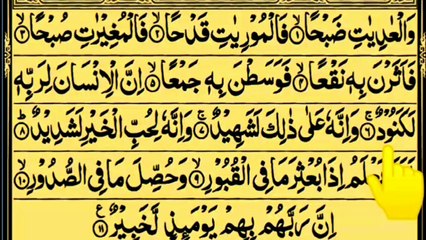 وَالْعٰدِیٰتِ ضَبْحًا ۙ۝۱ فَالْمُوْرِیٰتِ قَدْحًا ۙ۝۲ فَالْمُغِیْرٰتِ صُبْحًا ۙ۝۳
فَاَثَرْنَ بِهٖ نَقْعًا ۙ۝۴ فَوَسَطْنَ بِهٖ جَمْعًا ۙ۝۵ اِنَّ الْاِنْسَانَ لِرَبِّهٖ
لَكَنُوْدٌ ۚ۝۶ وَاِنَّهٗ عَلٰی ذٰلِكَ لَشَهِیْدٌ ۚ۝۷ وَاِنَّهٗ لِحُبِّ الْخَیْرِ لَشَدِیْدٌ ؕ۝۸
اِذَا بُعْثِرَ مَا فِی الْقُبُوْرِ ۙ۝۹ وَحُصِّلَ مَا فِی الصُّدُوْرِ ۙ۝۱۰
اِنَّ رَبَّهُمْ بِهِمْ یَوْمَىِٕذٍ لَّخَبِیْرٌ ۠۝۱۱